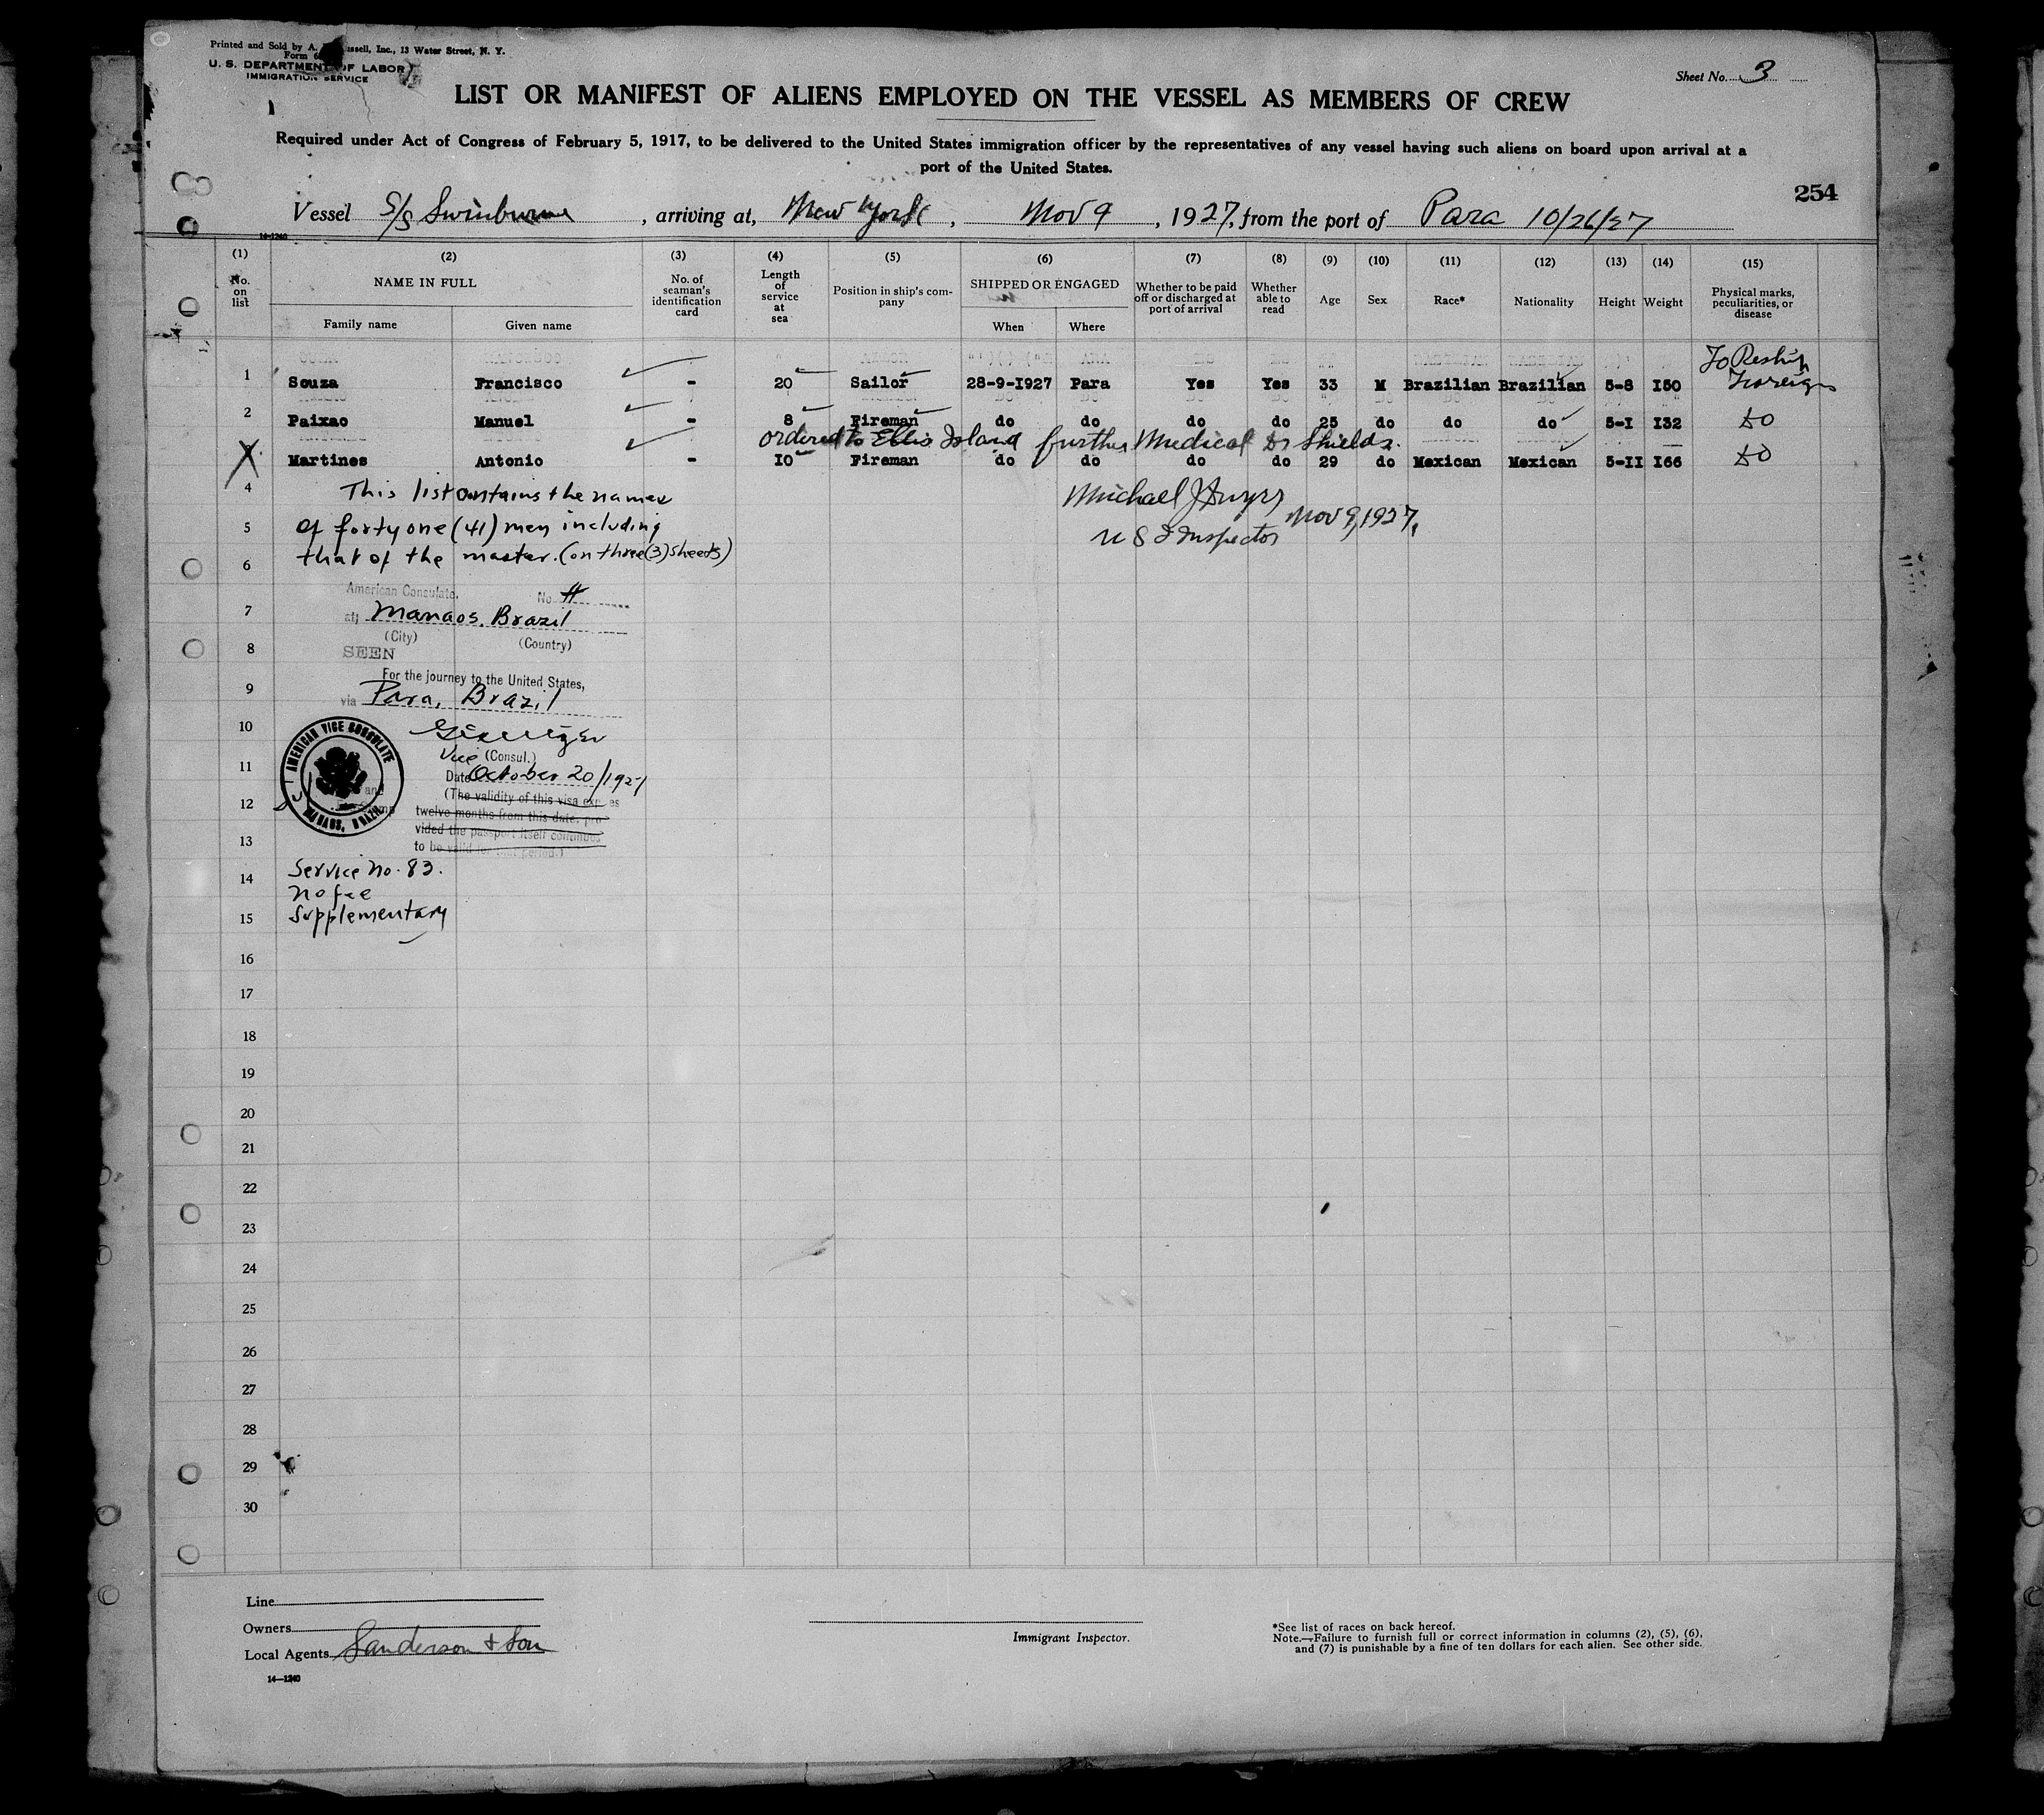 Printed and Sold by A. ssell, Inc., 13 Water Street, N. Y.
Form 6
U. S. DEPARTMENT OF LABOR
IMMIGRATION SERVICE
Sheet No. 3
LIST OR MANIFEST OF ALIENS EMPLOYED ON THE VESSEL AS MEMBERS OF CREW
Required under Act of Congress of February 5, 1917, to be delivered to the United States immigration officer by the representatives of any vessel having such aliens on board upon arrival at a
port of the United States.
254
Vessel S/S Swinburne, arriving at, New York, Nov 9, 1927, from the port of Para 10/26/27
14-1240
(1) (2) (3) (4) (5) (6) (7) (8) (9) (10) (11) (12) (13) (14) (15)
No. on list
NAME IN FULL
Family name
Given name
No. of seaman's identification card
Length of service at sea
Position in ship's company
SHIPPED OR ENGAGED
When
Where
Whether to be paid off or discharged at port of arrival
Whether able to read
Age
Sex
Race*
Nationality
Height
Weight
Physical marks, peculiarities, or disease
1 Souza Francisco - 20 Sailor 28-9-1927 Para Yes Yes 33 M Brazilian Brazilian 5-8 150 To Reship Foreign
2 Paixao Manuel - 8 Fireman do do do do 25 do do do 5-1 132 do
ordered to Ellis Island further Medical Dr Shields.
X Martines Antonio - 10 Fireman do do do do 29 do Mexican Mexican 5-11 166 do
4 This list contains the names
5 of forty one (41) men including
6 that of the master. (on three (3) sheets)
Michael J Dwyer
Nov 9, 1927,
U S I Inspector
American Consulate.
No.
7 at Manaos, Brazil
(City) (Country)
8 SEEN
For the journey to the United States,
9 via Para, Brazil
10
Vice (Consul.)
11 Date October 20/1927
AMERICAN VICE CONSULATE
MANAOS, BRAZIL
12 (The validity of this visa expires
twelve months from this date, pro-
vided the passport itself continues
13 to be valid for that period.)
14 Service No. 83.
No fee
15 Supplementary
16
17
18
19
20
21
22
23
24
25
26
27
28
29
30
Line
Owners
Local Agents Sanderson & Son
14-1240
Immigrant Inspector.
*See list of races on back hereof.
Note.—Failure to furnish full or correct information in columns (2), (5), (6),
and (7) is punishable by a fine of ten dollars for each alien. See other side.